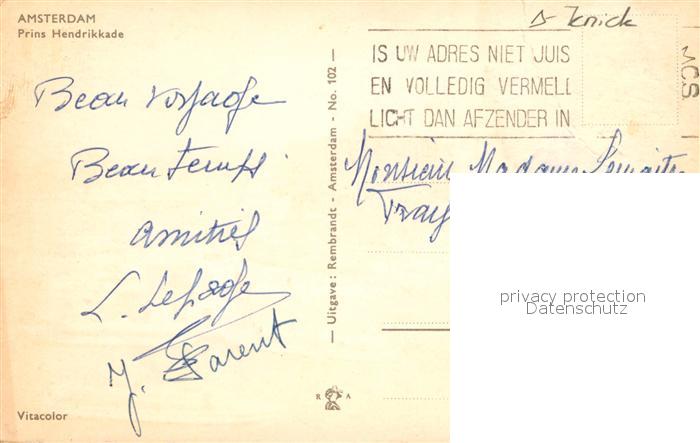 AMSTERDAM
Prins Hendrikkade
Beau voyage
Beau temps
amitiés
L. Lepage
J. Parent
Vitacolor
— Uitgave: Rembrandt - Amsterdam - No. 102 —
R A
IS UW ADRES NIET JUIS
EN VOLLEDIG VERMELD
LICHT DAN AFZENDER IN
Monsieur Madame
privacy protection
Datenschutz